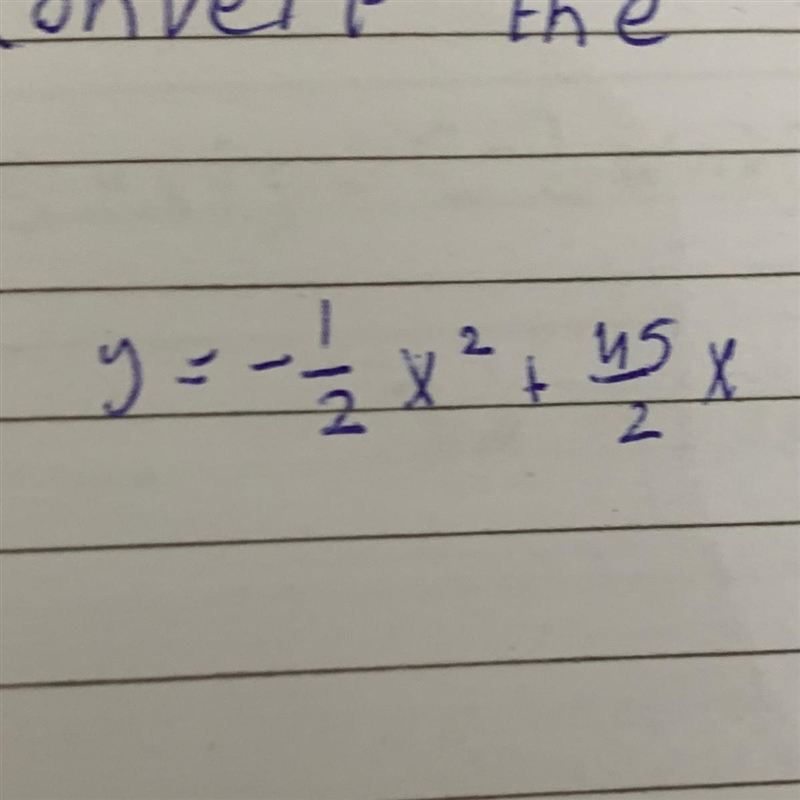 Convert the
y = -1/2 x² + 45/2 x